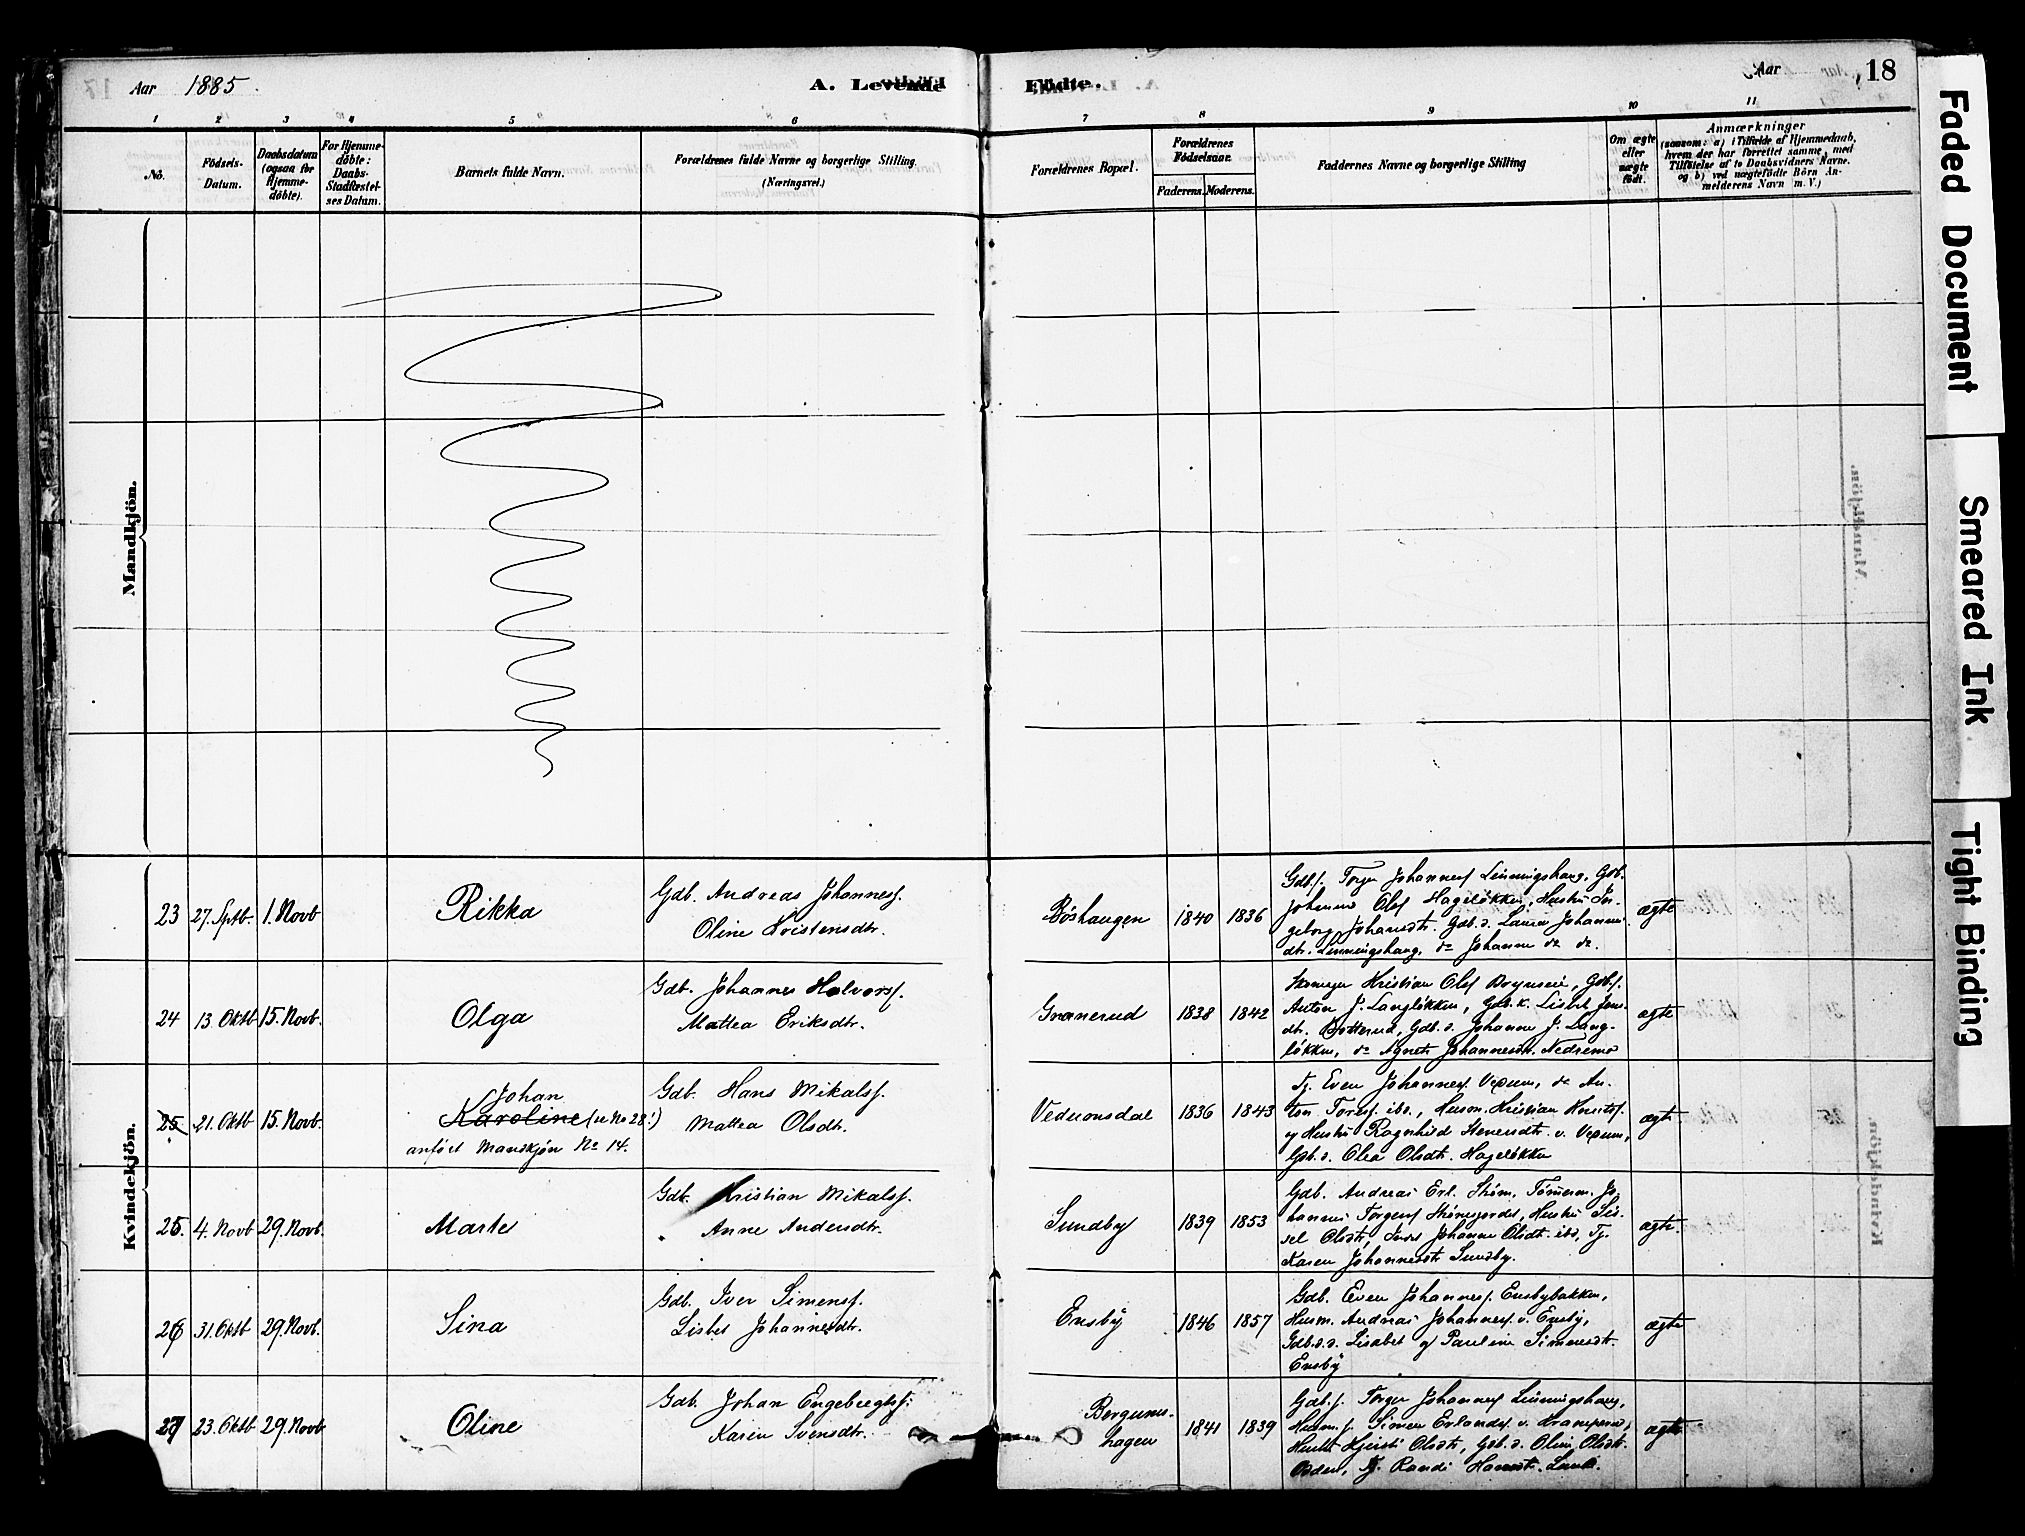 Aar 1885.
A. Levende Födte.
Aar
18
1 2 3 4 5 6 7 8 9 10 11
No.
Födsels-Datum.
Daabsdatum (ogsaa for Hjemme-døbte).
For Hjemme-døbte: Daabs-Stadfæstel-ses Datum.
Barnets fulde Navn.
Forældrenes fulde Navne og borgerlige Stilling. (Næringsvei.)
Forældrenes Bopæl.
Forældrenes Födselsaar.
Faderens. Moderens.
Faddernes Navne og borgerlige Stilling
Om ægte eller uægte født.
Anmærkninger
(saasom: a) i Tilfælde af Hjemmedaab,
hvem der har forrettet samme, med
Tilföielse af to Daabsvidners Navne.
og b) ved uægtefödte Börn An-
melderens Navn m. V.)
Mandkjön.
Kvindekjön.
23 27. Sptb. 1. Novb Rikka
Gdb. Andreas Johannesf.
Oline Kristensdtr.
Böshaugen 1840 1836
Gdb.f. Torger Johannesf Linningshaug, Gdb.
Johannes Olsf Hageløkken, Hustru In-
geborg Johansdtr. Gdb.d. Laura Johannes
dtr. Linningshaug, do Johanne do do.
ægte
24 13. Oktb 15. Novb. Olga
Gdb. Johannes Halvorsf.
Mattea Eriksdtr.
Granerud 1838 1842
Kristian Olsf Brynseie, Gdbf.
Anton J. Langløkken, Gdb.k. Lisbet Jens
dtr. Botterud, Gdb.d. Johanne J. Lang-
løkken, do Agnete Johannesdtr. Nedremo
ægte
25 21. Oktb 15. Novb. Johan
Karoline (se No 28!)
anført Mandkjøn No 14.
Gdb. Hans Mikalsf.
Mattea Olsdtr.
1836 1843
Tj. Even Johannesf. Vexum, do An-
ton Toresf. ibd., Husm. Kristian Knutsf.
og Hustru Ragnhild Stenersdtr. v. Vexum,
Gdb.d. Olea Olsdtr. Hageløkken
ægte
25. 4. Novb 29. Novb. Marte
Gdb. Kristian Mikalsf.
Anne Andersdtr.
Sundby 1839 1853
Gdb. Andreas Erl. Strøm, Tømmerm. Jo-
hannes Torgersf Strømsjordet, Hustru Sis-
sel Olsdtr, Johanne Olsdtr. ibd, Tj.
Karen Johannesdtr Sundby.
ægte.
26 31. Oktb 29. Novb. Sina
Gdb. Iver Simensf.
Lisbet Johannesdtr.
Ensby 1846 1857
Gdb. Even Johannesf. Ensbybakken,
Husm. Andreas Johannesf. v. Ensby,
Gdb.d.d. Lisabet og Pauline Simensdtr.
Ensby
ægte
27 23. Oktb 29. Novb Oline
Gdb. Johan Engebregtsf.
Karen Svensdtr.
Bergums-
hagen 1841 1839
Gdb.f. Torger Johannesf Linningshaug,
Husm.f. Simen Erlandsf. v. Kramperud,
Hustru Kjersti Olsdtr, Gdb.d. Oline Olsdtr.
Odden, Tj. Randi Hansdtr.
ægte
Faded Document
Smeared Ink
Tight Binding